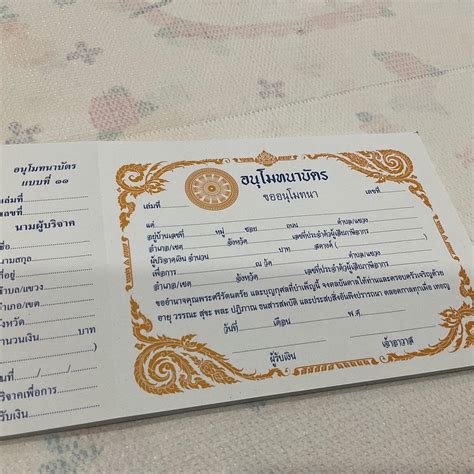 อนุโมทนาบัตร
แบบที่ ๑๑
เล่มที่
เลขที่
นามผู้บริจาค
ชื่อ
นามสกุล
ที่อยู่
ตำบล/แขวง
อำเภอ/เขต
จังหวัด
จำนวนเงิน บาท
( )
วันที่ / /
บริจาคเพื่อการ
ผู้รับเงิน
อนุโมทนาบัตร
ขออนุโมทนา
เล่มที่ เลขที่
แด่
อยู่บ้านเลขที่ หมู่ ซอย ถนน ตำบล/แขวง
อำเภอ/เขต จังหวัด เลขที่ประจำตัวผู้เสียภาษีอากร
ผู้บริจาคเงิน จำนวน บาท สตางค์ ( )
เพื่อการ ณ วัด ตำบล/แขวง
อำเภอ/เขต จังหวัด เลขที่ประจำตัวผู้เสียภาษีอากร
ขออำนาจคุณพระศรีรัตนตรัย และบุญกุศลที่บำเพ็ญนี้ จงดลบันดาลให้ท่านและครอบครัวเจริญด้วย
อายุ วรรณะ สุขะ พละ ปฏิภาณ ธนสารสมบัติ และประสบสิ่งอันพึงปรารถนา ตลอดกาลทุกเมื่อ เทอญ
วันที่ เดือน พ.ศ.
ผู้รับเงิน เจ้าอาวาส